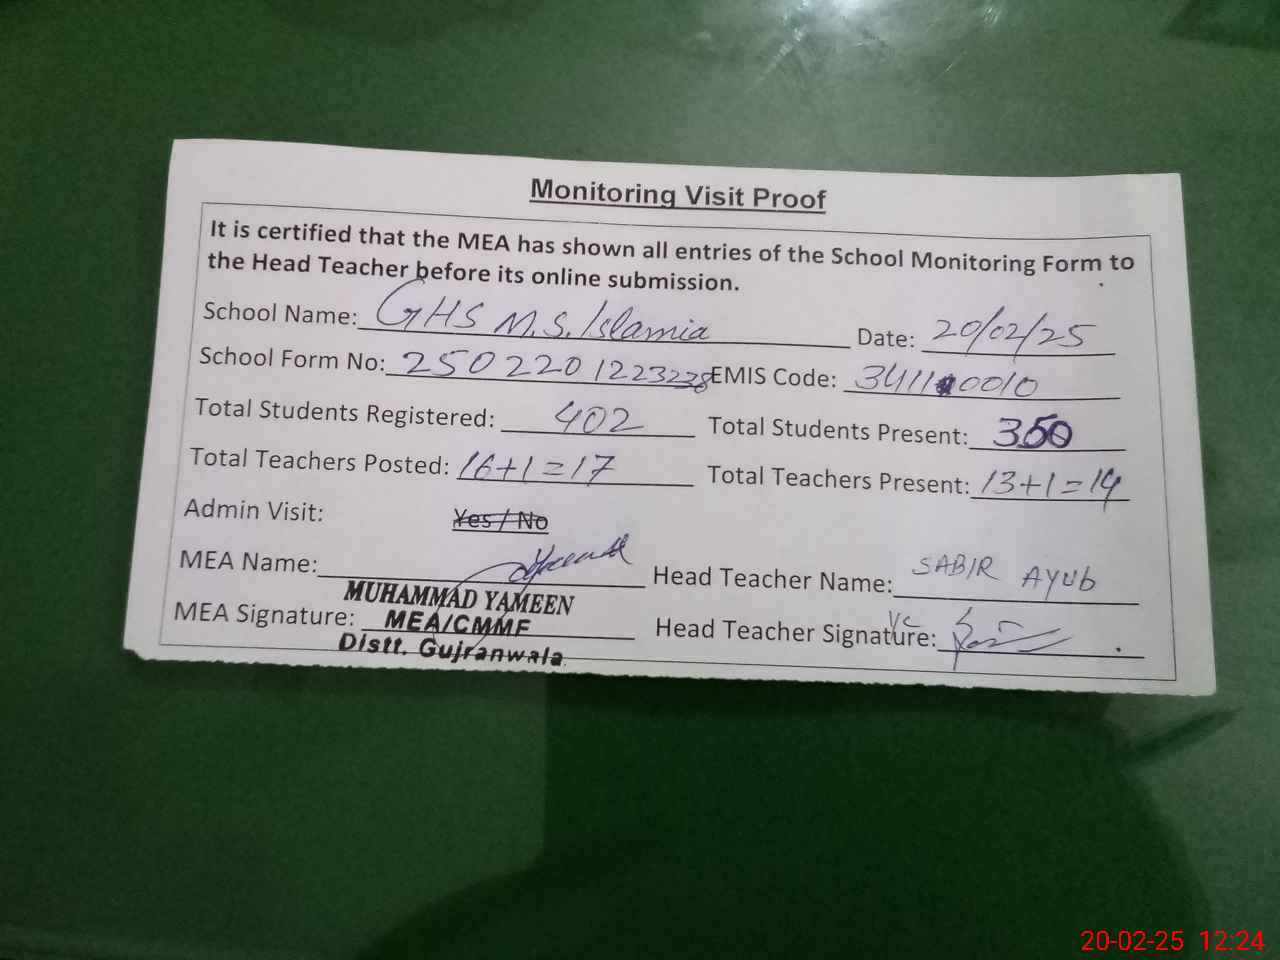 Monitoring Visit Proof
It is certified that the MEA has shown all entries of the School Monitoring Form to
the Head Teacher before its online submission.
School Name: GHS M.S. Islamia Date: 20/02/25
School Form No: 2502201223228 EMIS Code: 34110010
Total Students Registered: 402 Total Students Present: 350
Total Teachers Posted: 16+1=17 Total Teachers Present: 13+1=14
Admin Visit: Yes / No
MEA Name: Head Teacher Name: SABIR AYUb
MUHAMMAD YAMEEN
MEA Signature: MEA/CMMF Head Teacher Signature:
Distt. Gujranwala
20-02-25 12:24